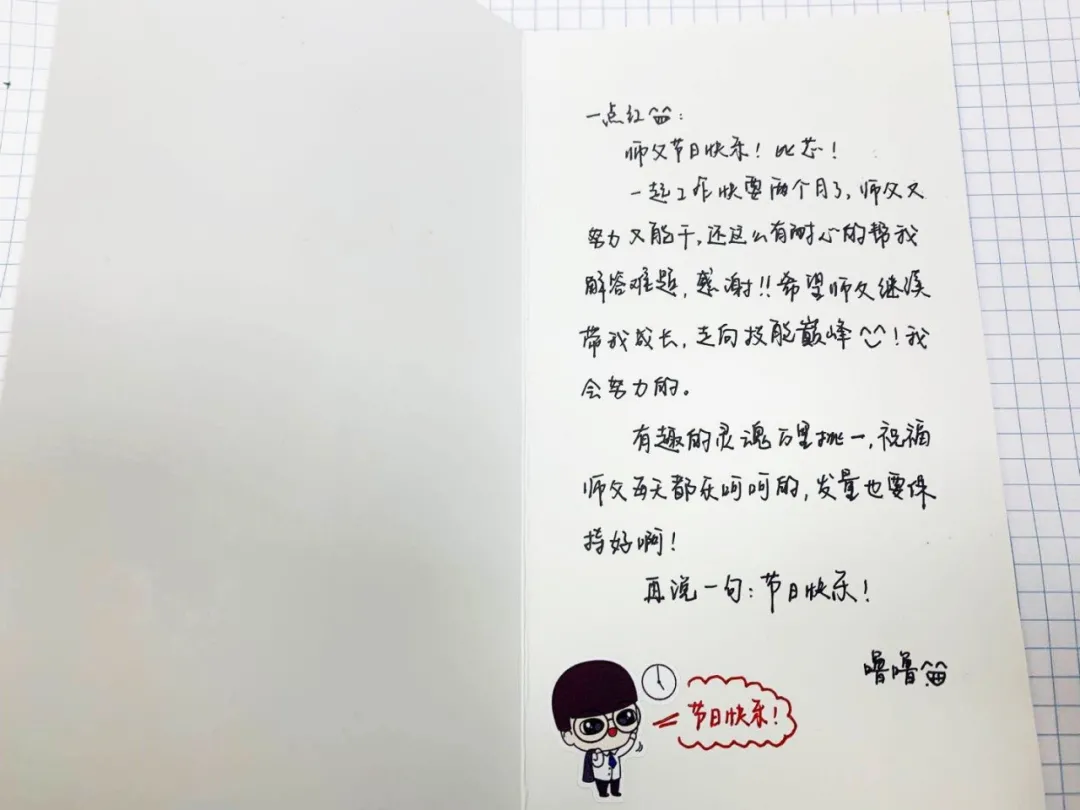 一点红:
师父节日快乐！比芯！
一起工作快要两个月了，师父又
努力又能干，还这么有耐心的帮我
解答难题，感谢!!希望师父继续
带我成长，走向技能巅峰！我
会努力的。
有趣的灵魂万里挑一，祝福
师父每天都乐呵呵的，发量也要保
持好啊！
再说一句：节日快乐！
噜噜
节日快乐！